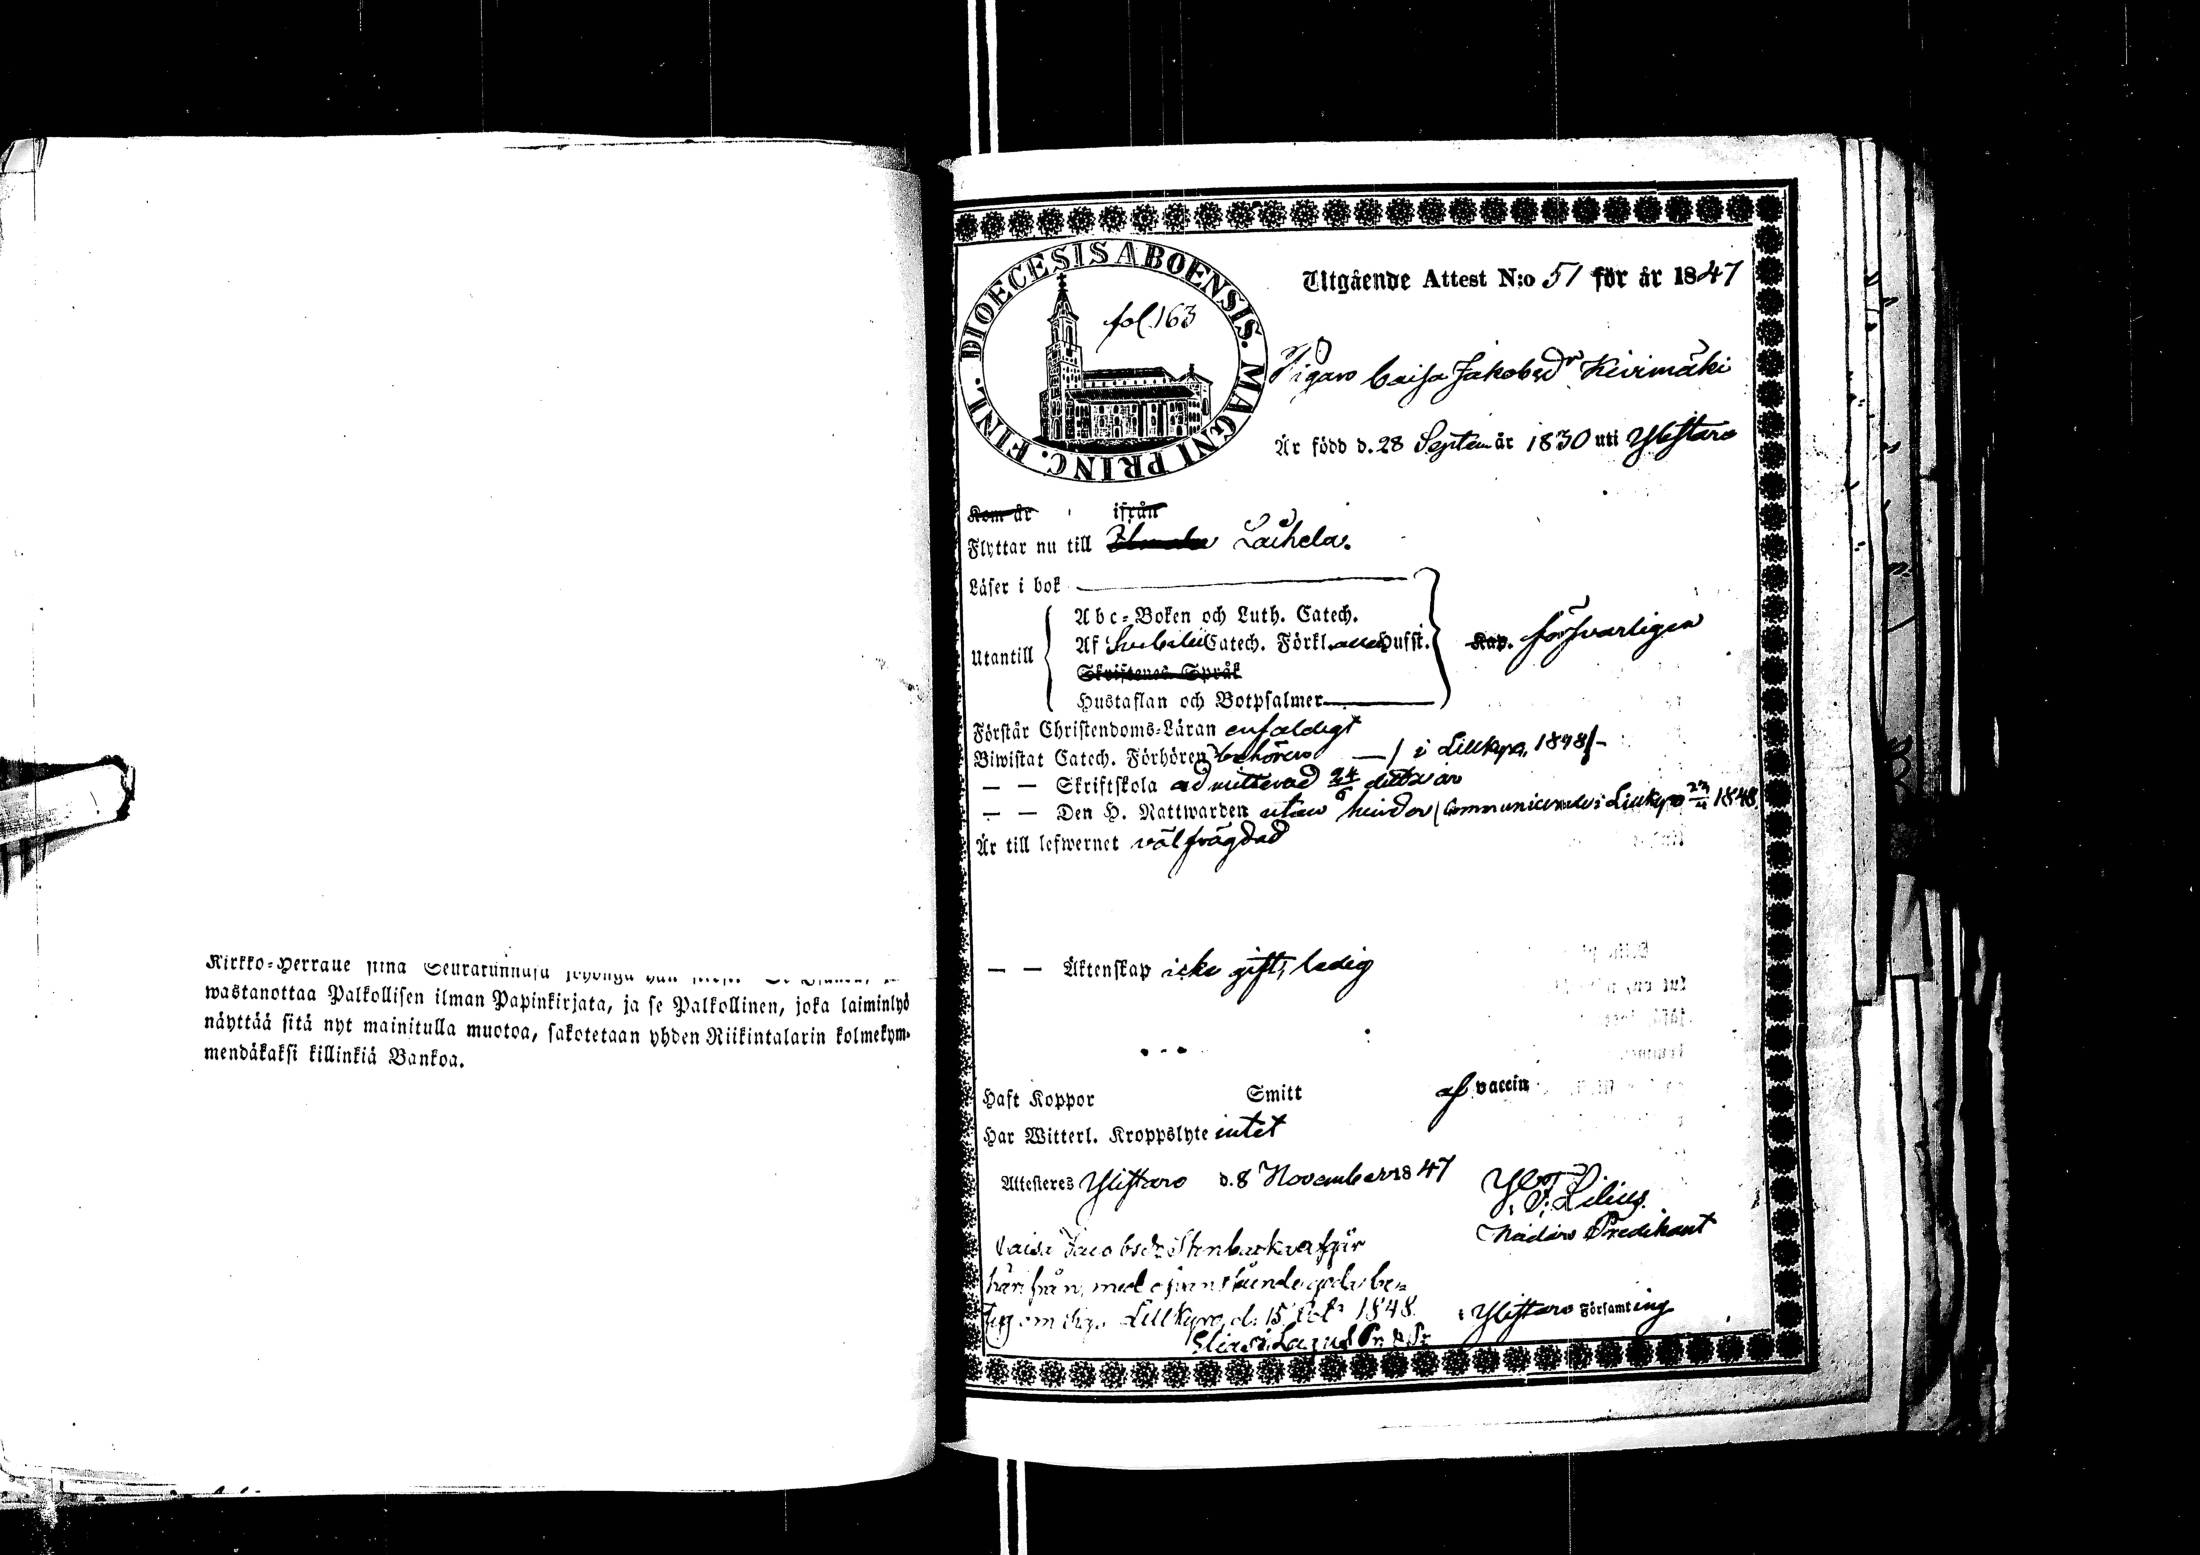 Kirkko-Herralle siinä Seurakunnasa
wastanottaa Palkollisen ilman Papinkirjata, ja se Palkollinen, joka laiminlyö
näyttää sitä nyt mainitulla muotoa, sakotetaan yhden Riikintalarin kolmekym-
mendäkaksi killinkiä Bankoa.
DIOECESIS ABOENSIS. MAGNI PRINC. FINL.
fol. 163
Utgående Attest N:o 51 för år 1847
Pigan Caisa Jakobsdr Keirimäki
Är född d. 28 Septem år 1830 uti Ylistaro
Kom år ifrån
Flyttar nu till Ilmola Laihela.
Läser i bok
Abc-Boken och Luth. Catech.
Utantill Af Svebelii Catech. Förkl. alla Hufst. Kap. försvarligen
Skriftenes Språk
Hustaflan och Botpsalmer
Förstår Christendoms-Läran enfaldigt
Biwistat Catech. Förhören behörigen i Lillkyro, 1848
— — Skriftskola admitterad 24/6 detta år
— — Den H. Nattwarden utan hinder Communicerade i Lillkyro 1848
Är till lefwernet välfrägdad
— — Äktenskap icke gift, ledig
Haft Koppor Smitt af vaccin
Har Witterl. Kroppslyte intet
Attesteres Ylistaro d. 8 November 1847
Lilius.
Predikant
i Ylistaro Församling
Caisa Jacobsdr Stenbacka afgår
härifrån med ofvanstående goda be-
Lillkyro, d. 15 1848.